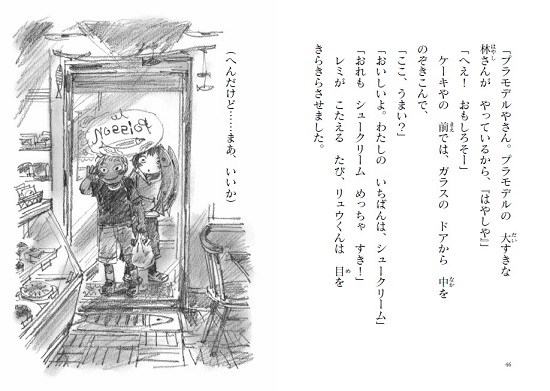 「プラモデルやさん。プラモデルの 大すきな
林さんが やっているから、『はやしや』」
「へえ！ おもしろそー」
ケーキやの 前では、ガラスの ドアから 中を
のぞきこんで、
「ここ、うまい？」
「おいしいよ。わたしの いちばんは、シュークリーム」
「おれも シュークリーム めっちゃ すき！」
レミが こたえる たび、リュウくんは 目を
きらきらさせました。
46
（へんだけど……まあ、いいか）